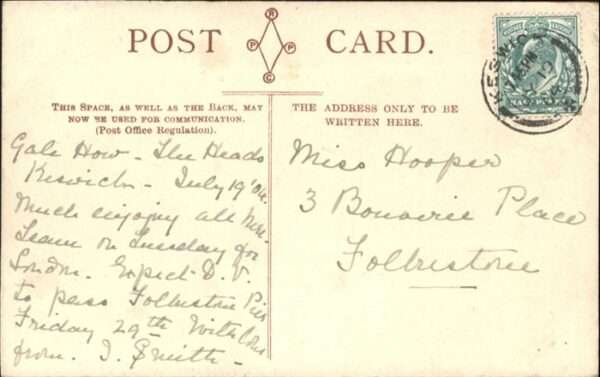 POST CARD.
R
P P
C
THIS SPACE, AS WELL AS THE BACK, MAY
NOW BE USED FOR COMMUNICATION.
(Post Office Regulation).
THE ADDRESS ONLY TO BE
WRITTEN HERE.
KESWICK
Gale How - The Heads
Keswick - July 19 '04.
Much enjoying all here.
Leave on Tuesday for
London. Expect D.V.
to pass Folkestone Pier
Friday 29th With love
from. I. Smith -
Miss Hooper
3 Bouverie Place
Folkestone